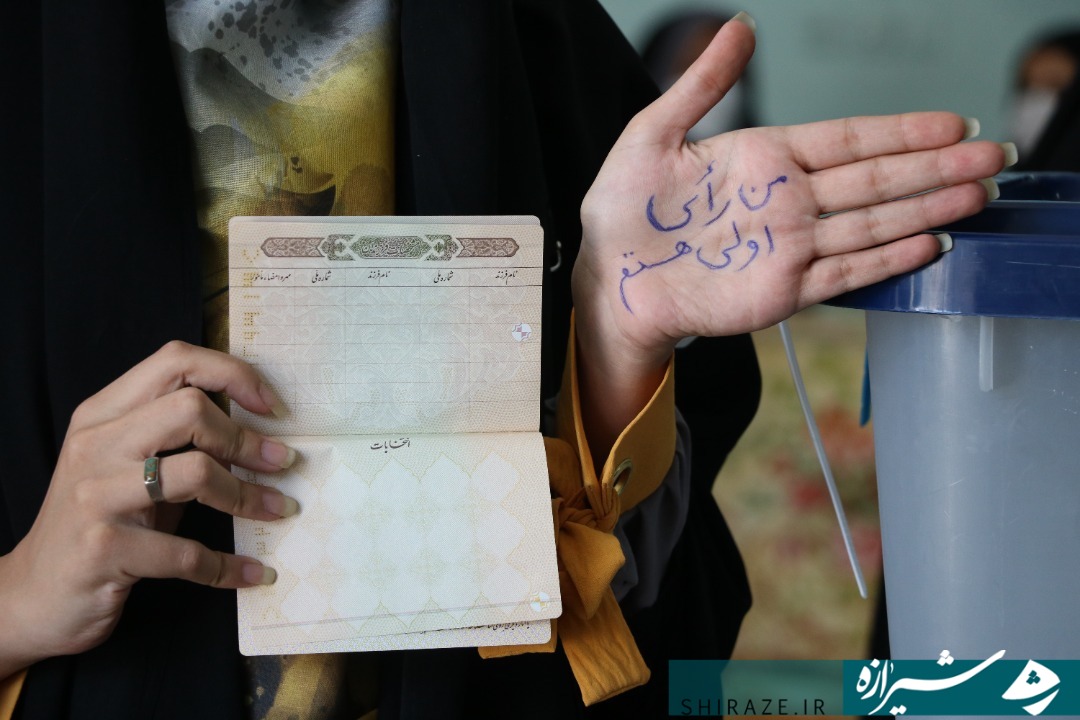 من رأی
اولی هستم
نام فرزند شماره ملی نام فرزند شماره ملی مهر و امضاء مأمور
انتخابات
شیرازه
SHIRAZE.IR